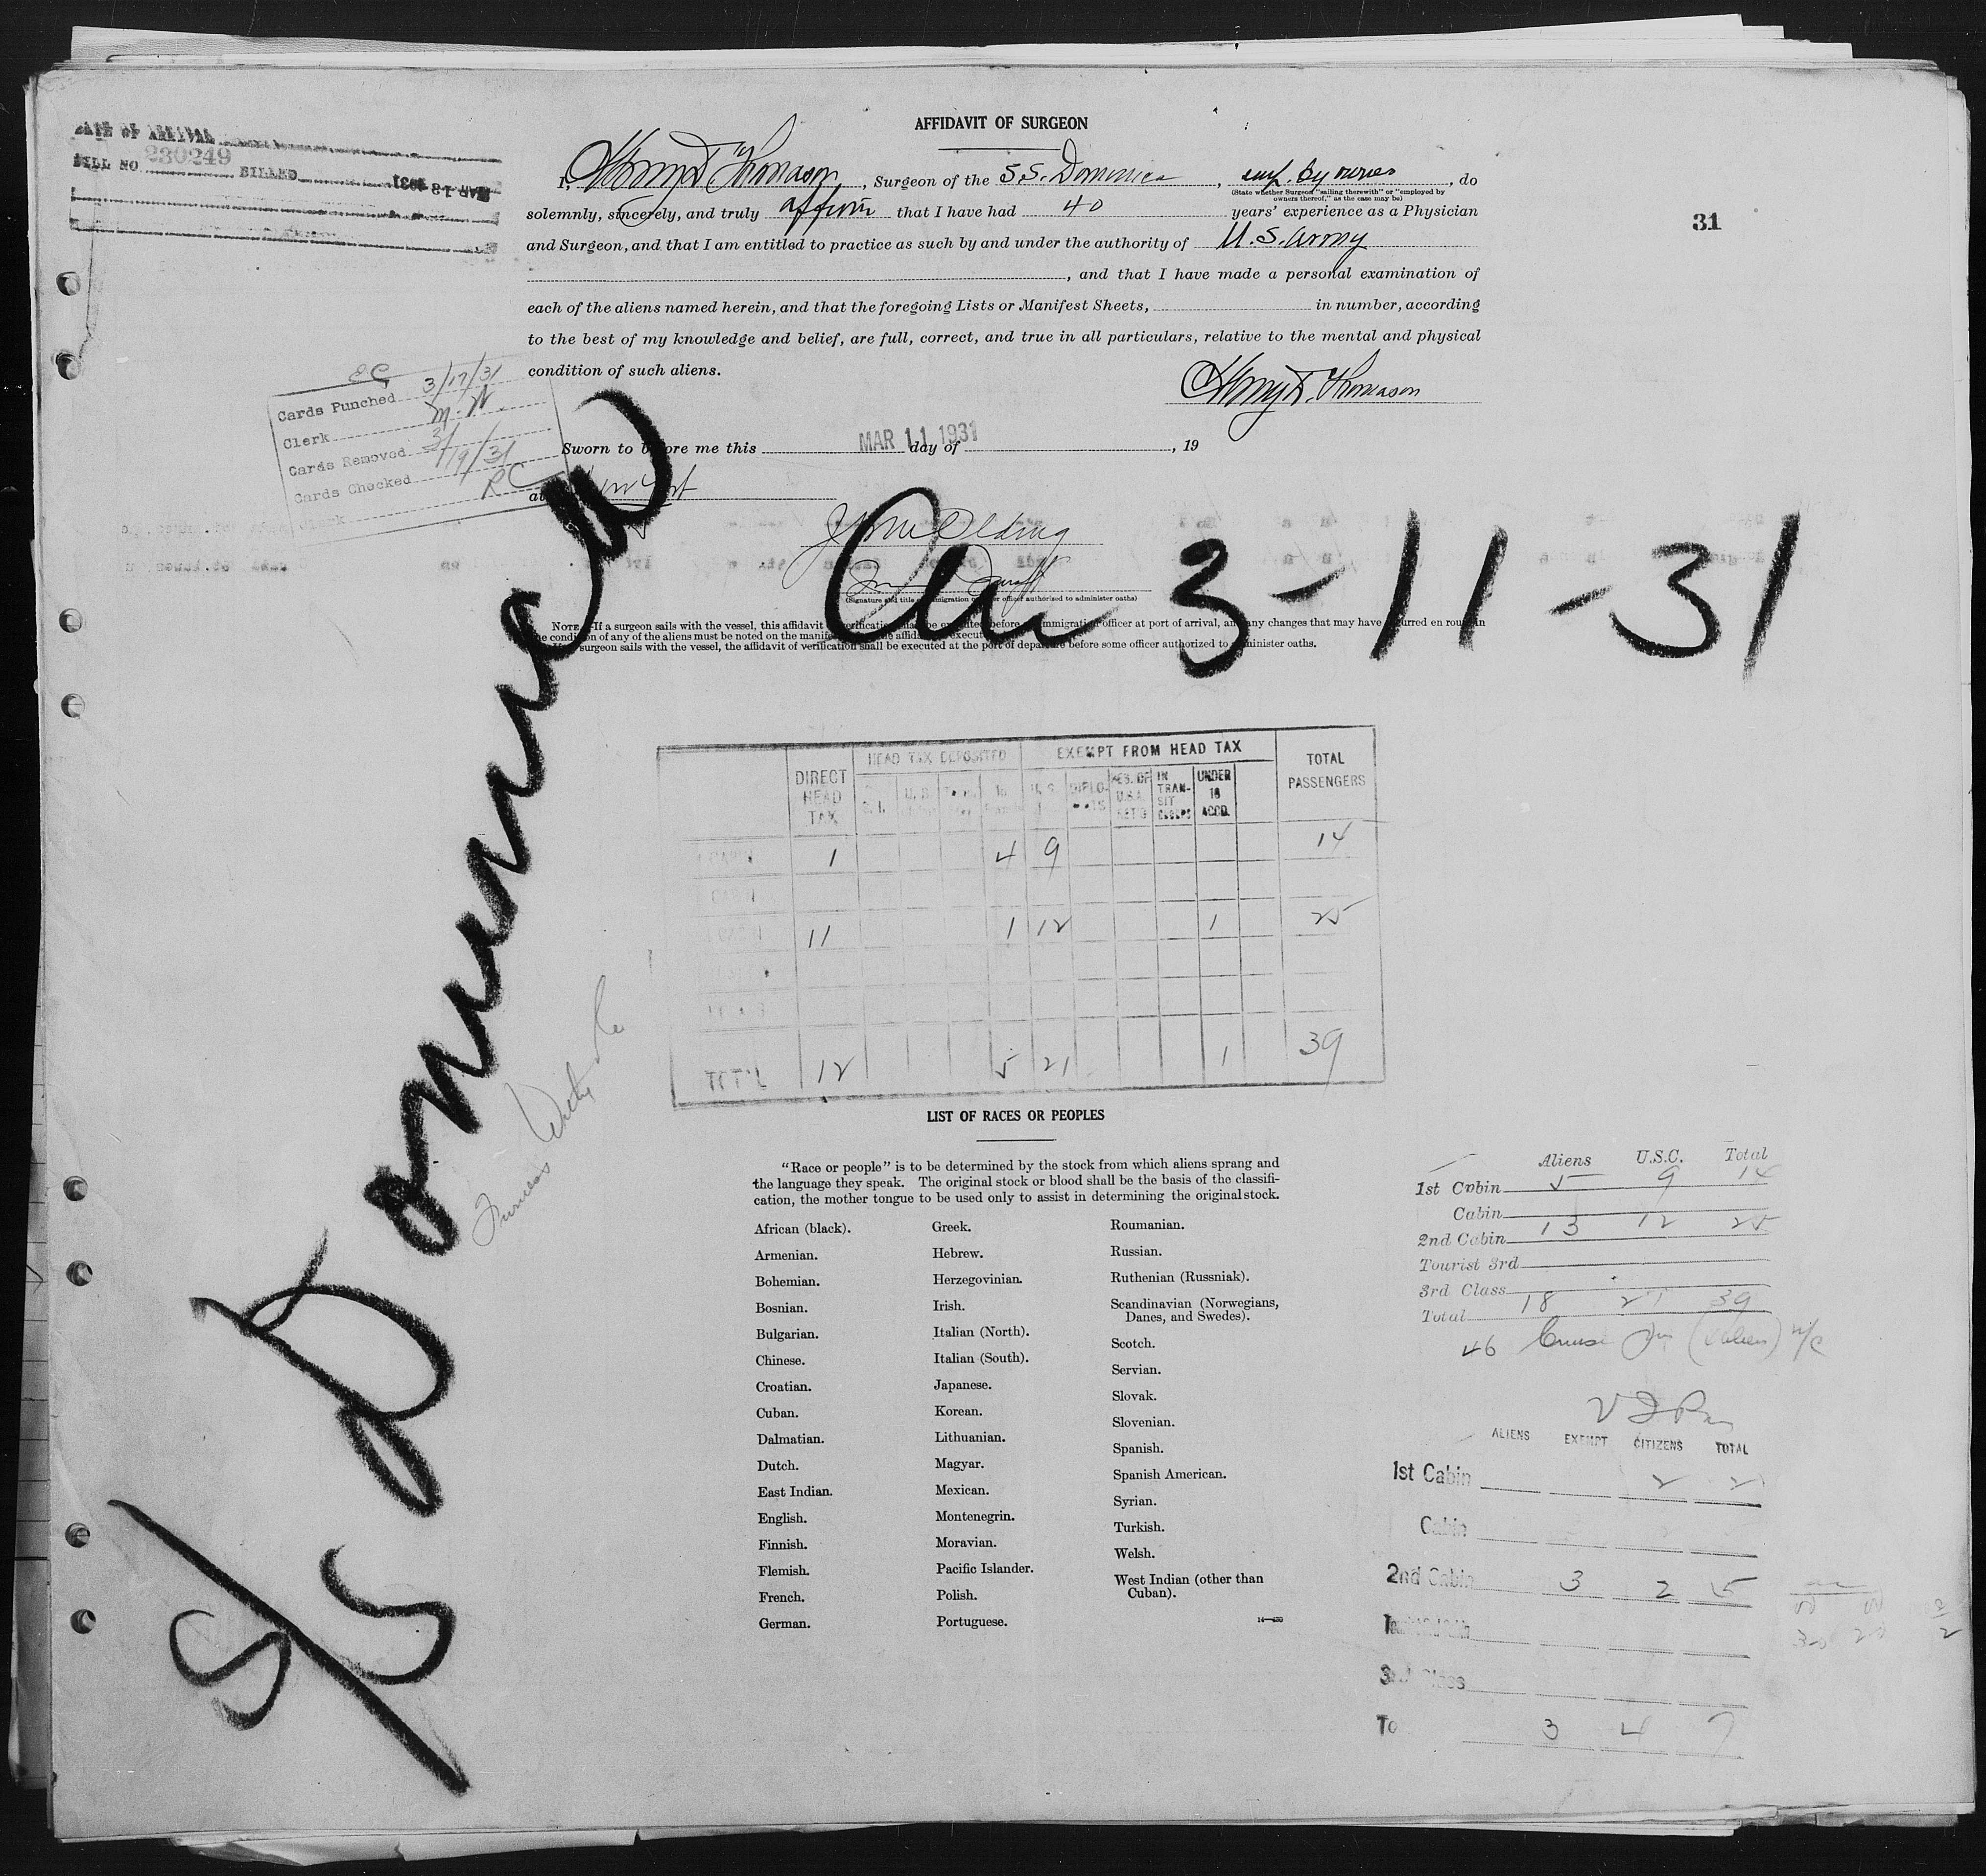 AFFIDAVIT OF SURGEON
DATE OF ARRIVAL
BILL NO 230249 BILLED MAR 18 1931
I, Henry D Thomason, Surgeon of the S.S. Dominica, emp. by owners, do
(State whether Surgeon "sailing therewith" or "employed by
owners thereof," as the case may be)
solemnly, sincerely, and truly affirm that I have had 40 years' experience as a Physician
and Surgeon, and that I am entitled to practice as such by and under the authority of U.S. Army
, and that I have made a personal examination of
each of the aliens named herein, and that the foregoing Lists or Manifest Sheets, in number, according
to the best of my knowledge and belief, are full, correct, and true in all particulars, relative to the mental and physical
condition of such aliens.
31
Henry D. Thomason
EC
Cards Punched 3/17/31
Clerk M.W.
Cards Removed
Cards Checked 3/19/31
Clerk RC
Sworn to before me this MAR 11 1931 day of , 19
at New York
(Signature and title of immigration or other officer authorized to administer oaths)
Arr 3-11-31
NOTE.—If a surgeon sails with the vessel, this affidavit of verification shall be executed before an immigration officer at port of arrival, and any changes that may have occurred en route in
the condition of any of the aliens must be noted on the manifest before the affidavit is executed.
surgeon sails with the vessel, the affidavit of verification shall be executed at the port of departure before some officer authorized to administer oaths.
S/S Dominica
Furness Withy Co
DIRECT HEAD TAX
HEAD TAX DEPOSITED
EXEMPT FROM HEAD TAX
TOTAL PASSENGERS
U.S. DIPLOMATS RES. OF U.S.A. RET'D IN TRANSIT UNDER 16 ACCD.
CABIN 1 4 9 14
CABIN
CABIN 11 1 12 1 25
TOT'L 12 5 21 1 39
LIST OF RACES OR PEOPLES
"Race or people" is to be determined by the stock from which aliens sprang and
the language they speak. The original stock or blood shall be the basis of the classifi-
cation, the mother tongue to be used only to assist in determining the original stock.
African (black).
Armenian.
Bohemian.
Bosnian.
Bulgarian.
Chinese.
Croatian.
Cuban.
Dalmatian.
Dutch.
East Indian.
English.
Finnish.
Flemish.
French.
German.
Greek.
Hebrew.
Herzegovinian.
Irish.
Italian (North).
Italian (South).
Japanese.
Korean.
Lithuanian.
Magyar.
Mexican.
Montenegrin.
Moravian.
Pacific Islander.
Polish.
Portuguese.
Roumanian.
Russian.
Ruthenian (Russniak).
Scandinavian (Norwegians,
Danes, and Swedes).
Scotch.
Servian.
Slovak.
Slovenian.
Spanish.
Spanish American.
Syrian.
Turkish.
Welsh.
West Indian (other than
Cuban).
Aliens U.S.C. Total
1st Cabin 5 9 14
Cabin
2nd Cabin 13 12 25
Tourist 3rd
3rd Class
Total 18 21 39
46 Cruise
ALIENS EXEMPT CITIZENS TOTAL
1st Cabin 2 2
Cabin
2nd Cabin 3 2 5
3rd Class
To 3 4 7